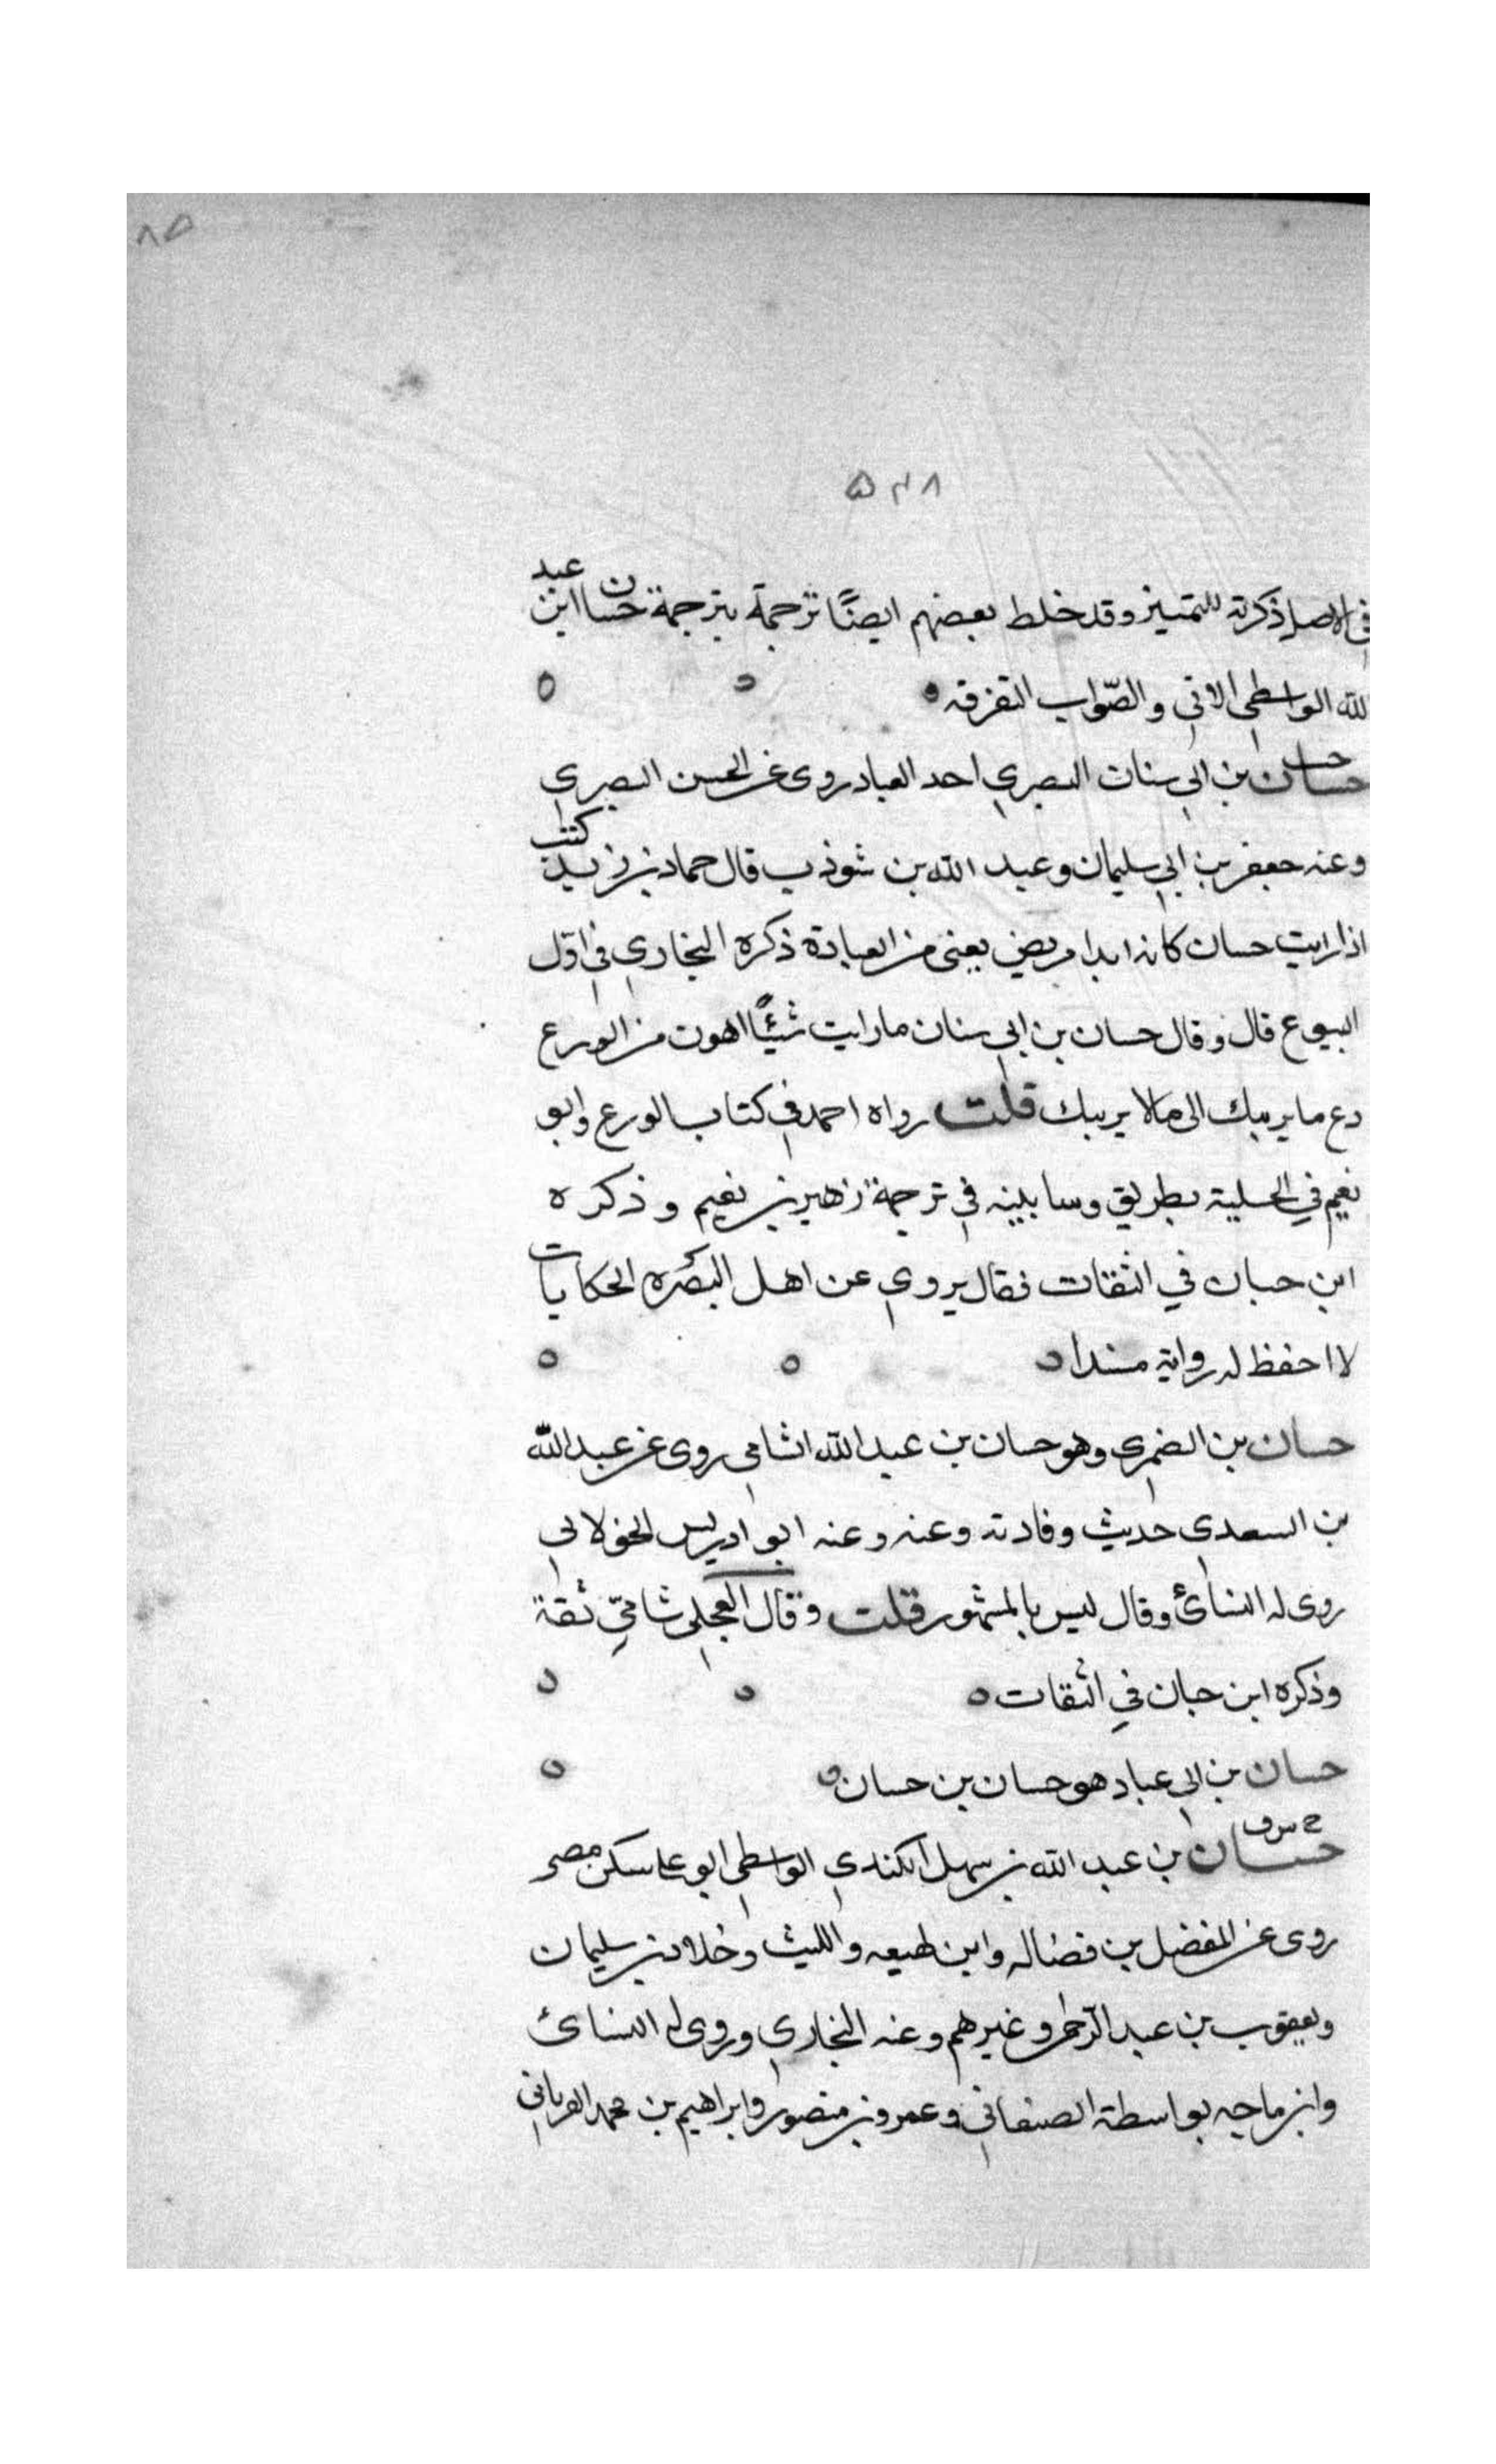 ٨٥
٥٣٨
في الاصل ذكرته للتمييز وقد خلط بعضهم ايضًا ترجمة بترجمة حسان ابن عبد
لله الواسطي الاتي والصّواب التفرقه
حسان بن ابي سنان البصري احد العباد روى عن الحسن البصري
وعنه جعفر بن ابي سليمان وعبد الله بن شوذب قال حماد بن زيد كنت
اذا رايت حسان كانه ابدا مريض يعني من العبادة ذكره البخاري في اوّل
البيوع قال وقال حسان بن ابي سنان ما رايت شيئًا اهون من الورع
دع ما يريبك الى ما لا يريبك قلت رواه احمد في كتاب الورع وابو
نعيم في الحلية بطريق وسابينه في ترجمة زهير بن نعيم وذكره
ابن حبان في الثقات فقال يروي عن اهل البصره الحكايات
لا احفظ له رواية مسندا
حسان بن الضمري وهو حسان بن عبد الله الشامي روى عن عبد الله
بن السعدي حديث وفادته وعنه وعنه ابو ادريس الخولاني
روى له النسائ وقال ليس بالمشهور قلت وقال العجلي شامي ثقة
وذكره ابن حبان في الثقات
حسان بن ابي عباد هو حسان بن حسان
خ س ق
حسان بن عبد الله بن سهل الكندي الواسطي ابو علي سكن مصر
روى عن المفضل بن فضاله وابن لهيعه والليث وخلاد بن سليمان
ويعقوب بن عبد الرحمن وغيرهم وعنه البخاري وروى له النسائ
وابن ماجه بواسطة الصنعاني وعمرو بن منصور وابراهيم بن محمد الفريابي